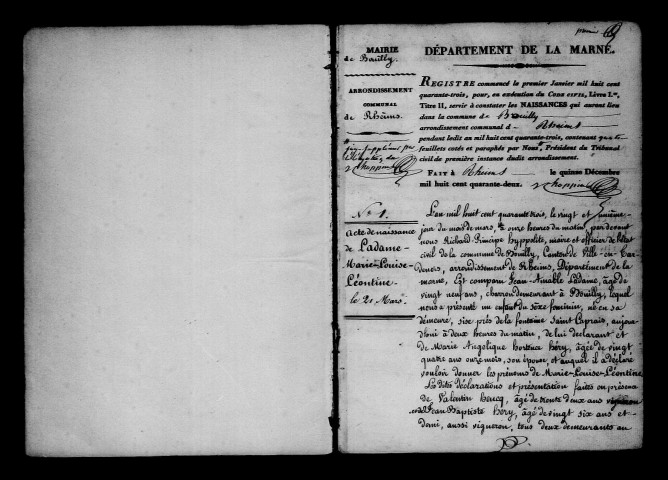 MAIRIE
de Bouilly.
ARRONDISSEMENT
COMMUNAL
de Rheims.
juge suppléant par
DÉPARTEMENT DE LA MARNE.
REGISTRE commencé le premier Janvier mil huit cent
quarante-trois, pour, en exécution du CODE CIVIL, Livre I.er
Titre II, servir à constater les NAISSANCES qui auront lieu
dans la commune de Bouilly
arrondissement communal d Rheims
pendant ledit an mil huit cent quarante-trois, contenant quatre
feuillets cotés et paraphés par Nous, Président du Tribunal
civil de première instance dudit arrondissement.
FAIT à Rheims le quinze Décembre
mil huit cent quarante-deux.
N.o 1.
Acte de naissance
de Ladame
Marie-Louise-
Léontine
le 21 Mars.
L'an mil huit cent quarante trois, le vingt et unième
jour du mois de mars, à onze heures du matin, par devant
nous Richard Principe hyppolite, maire et officier de l'état
civil de la commune de Bouilly, Canton de Ville-en-Tar-
denois, arrondissement de Rheims, Département de la
marne, Est comparu Jean-Amable Ladame, âgé de
vingt neuf ans, charron demeurant à Bouilly, lequel
nous a présenté un enfant du sexe feminin, né en sa
demeure, sise près de la fontaine Saint Caprais, aujour-
d'hui à deux heures du matin, de lui déclarant et
de Marie Angélique hortence Béry, âgée de vingt
quatre ans onze mois, son épouse, et auquel il a déclaré
vouloir donner les prénoms de Marie-Louise-Léontine
Les dites déclarations et présentation faites en présence
de Valentin heucq, âgé de trente deux ans vigneron
et Jean Baptiste Béry, âgé de vingt six ans et
demi, aussi vigneron, tous deux demeurants au